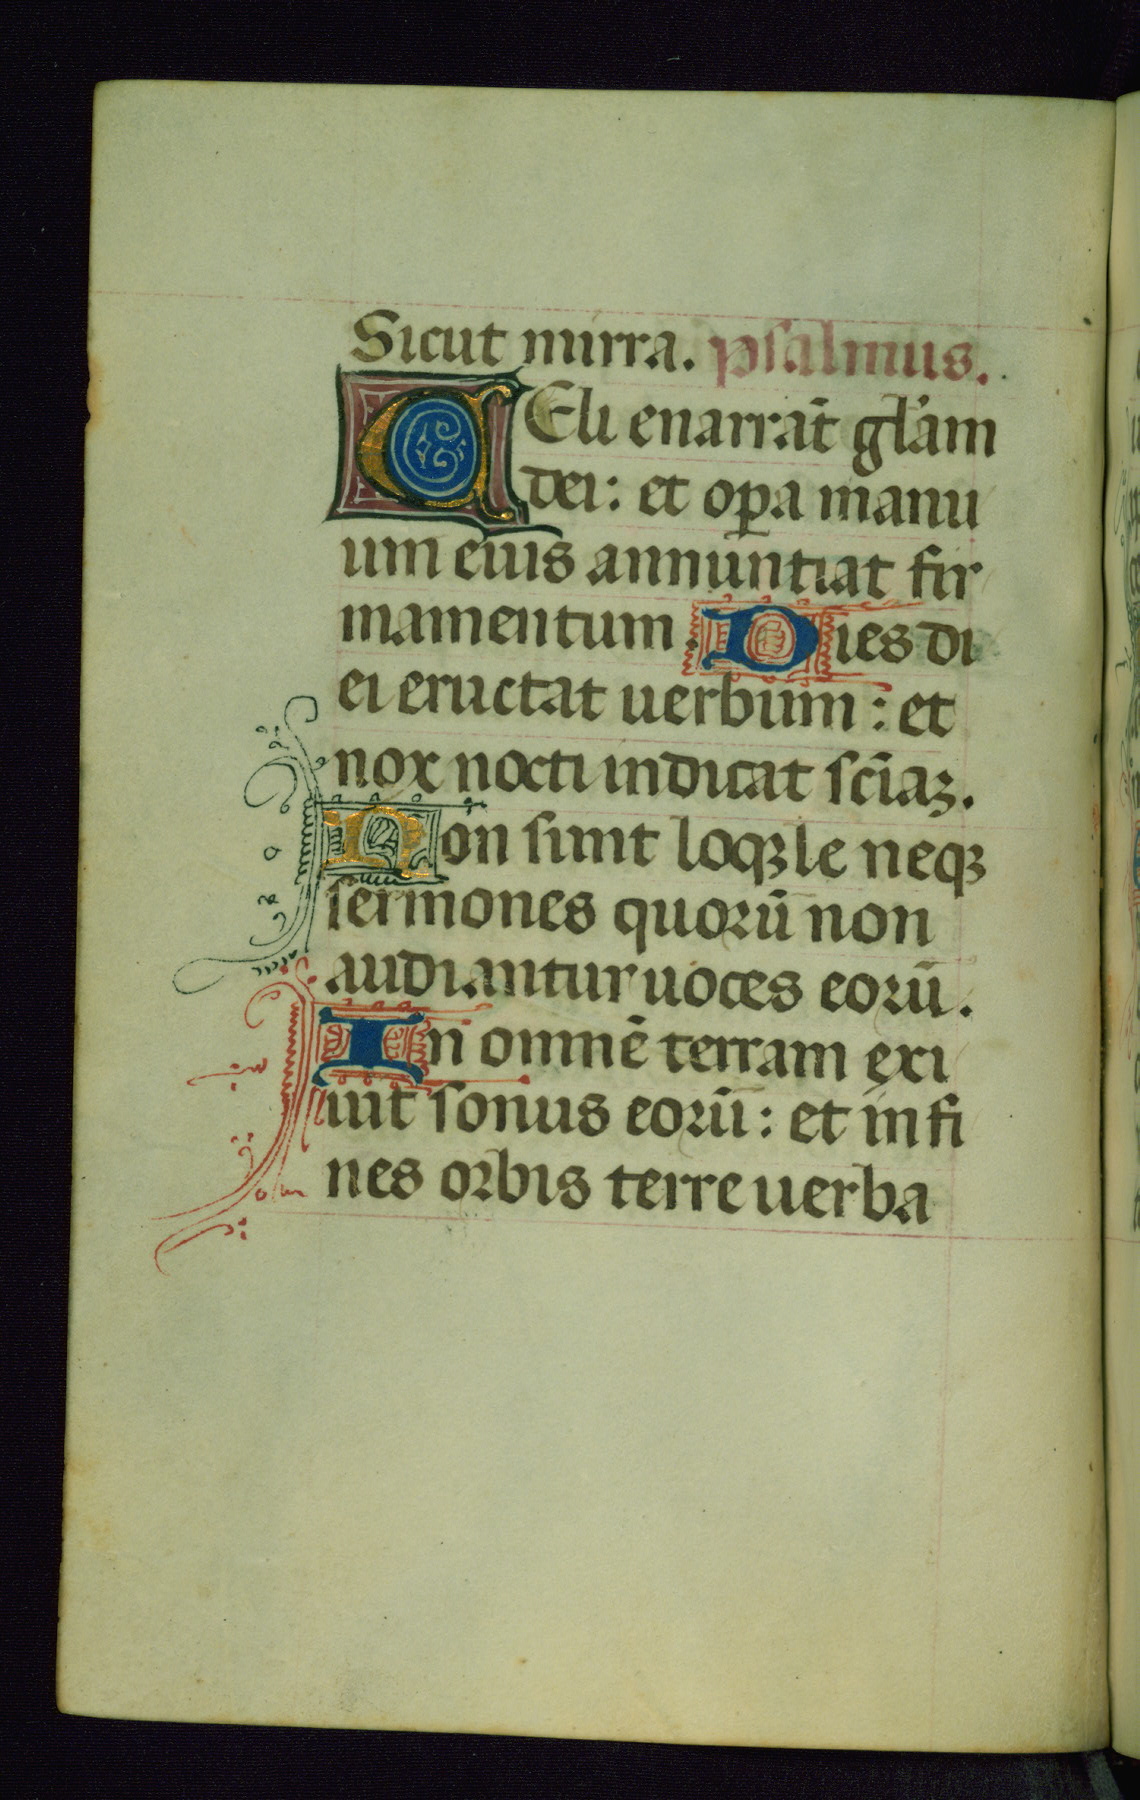 Sicut mirra. psalmus.
CEli enarrāt gl'am
dei: et opa manu
um eius annuntiat fir
mamentum. Dies di
ei eructat uerbum: et
nox nocti indicat sciāꝫ.
Non sunt loqꝫle neqꝫ
sermones quorū non
audiantur uoces eorū.
In omnē terram exi
uit sonus eorū: et in fi
nes orbis terre uerba